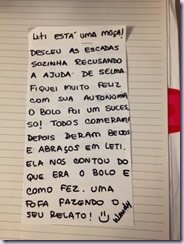 LETI ESTÁ UMA MOÇA!
DESCEU AS ESCADAS
SOZINHA RECUSANDO
A AJUDA DE SELMA.
FIQUEI MUITO FELIZ
COM SUA AUTONOMIA
O BOLO FOI UM SUCES
SO! TODOS COMERAM!
DEPOIS DERAM BEIJOS
E ABRAÇOS EM LETI.
ELA NOS CONTOU DO
QUE ERA O BOLO E
COMO FEZ. UMA
FOFA FAZENDO O
SEU RELATO!
Wendy